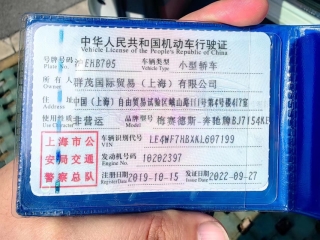 中华人民共和国机动车行驶证
Vehicle License of the People's Republic of China
号牌号码 沪EHB705 车辆类型 小型轿车
Plate No. Vehicle Type
所有人 群茂国际贸易（上海）有限公司
住址 中国（上海）自由贸易试验区峨山路111号第4号楼417室
使用性质 非营运 品牌型号 梅赛德斯-奔驰牌BJ7154
车辆识别代号 LE4WF7HBXKL607199
VIN
发动机号码 10202397
注册日期 2019-10-15 发证日期 2022-09-27
Register Date Issue Date
上海市公
安局交通
警察总队